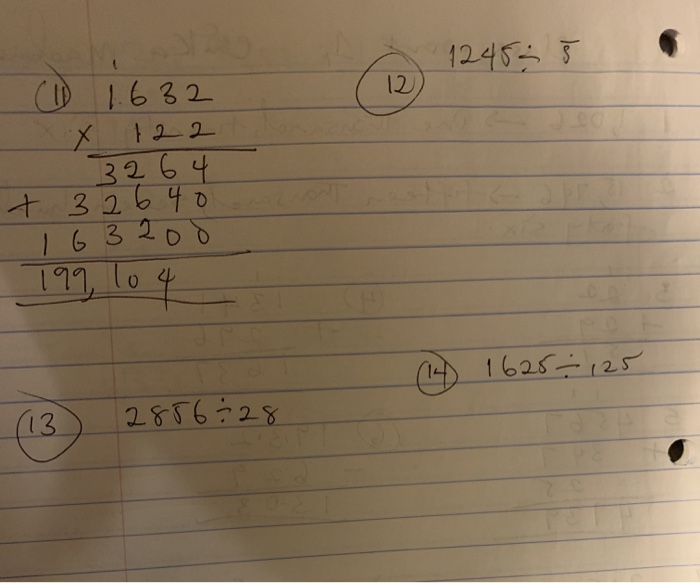 (11) 1632
x 122
3264
+ 32640
163200
199,104
(12) 1245 ÷ 5
(13) 2856 ÷ 28
(14) 1625 ÷ 125